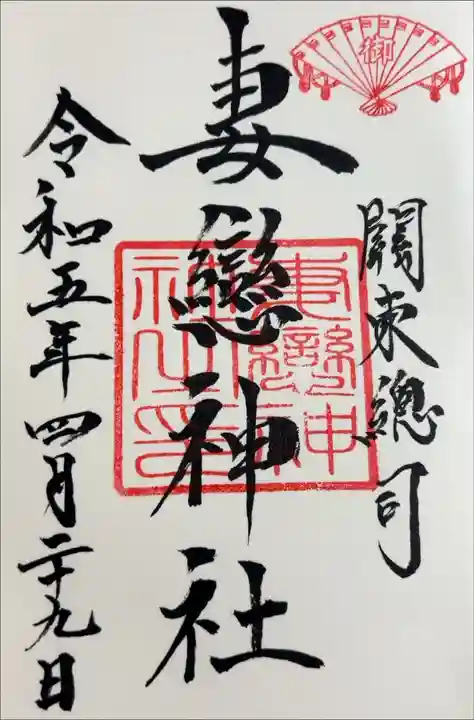 御
關東總司
妻戀神社
妻戀神社之印
令和五年四月二十九日